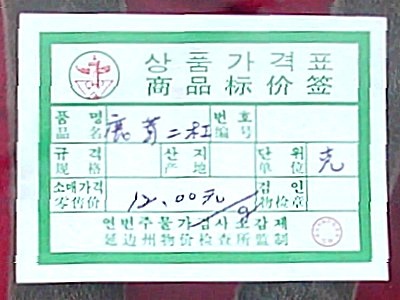 상품가격표
商品标价签
품명 鹿茸二杠 번호
品名 编号
규격 산지 단위 克
规格 产地 单位
소매가격 12.00元 검인
零售价 物检章
연변주물가검사소감제
延边州物价检查所监制